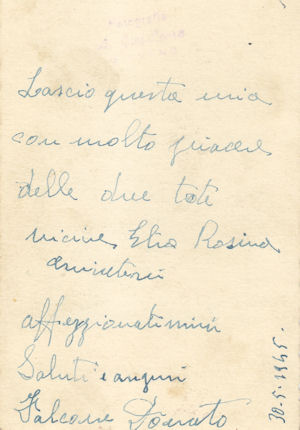 Fotografia
Lascio questa mia
con molto piacere
delle due tote
vicine Elia Rosina
affezzionatissimi
Saluti e auguri
Falcone Donato
30-5-1945.